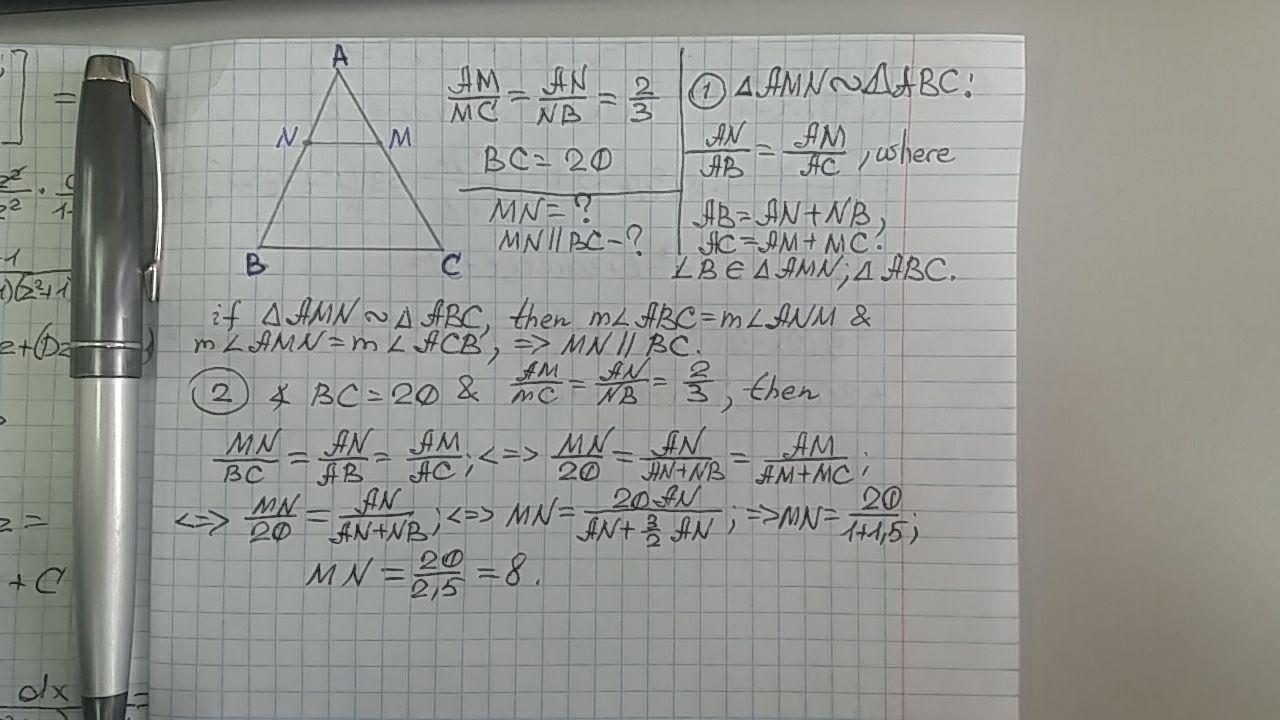 A
N M
B C
AM/MC = AN/NB = 2/3
BC = 20
MN = ?
MN || BC - ?
① △AMN ~ △ABC:
AN/AB = AM/AC, where
AB = AN + NB,
AC = AM + MC.
∠B ∈ △AMN; △ABC.
if △AMN ~ △ABC, then m∠ABC = m∠ANM &
m∠AMN = m∠ACB, => MN || BC.
② ∢ BC = 20 & AM/MC = AN/NB = 2/3, then
MN/BC = AN/AB = AM/AC; <=> MN/20 = AN/(AN+NB) = AM/(AM+MC);
<=> MN/20 = AN/(AN+NB); <=> MN = 20 AN/(AN + 3/2 AN); => MN = 20/(1+1,5);
MN = 20/2,5 = 8.
=
z² ·
z²
-1
z =
+ C
dx
=